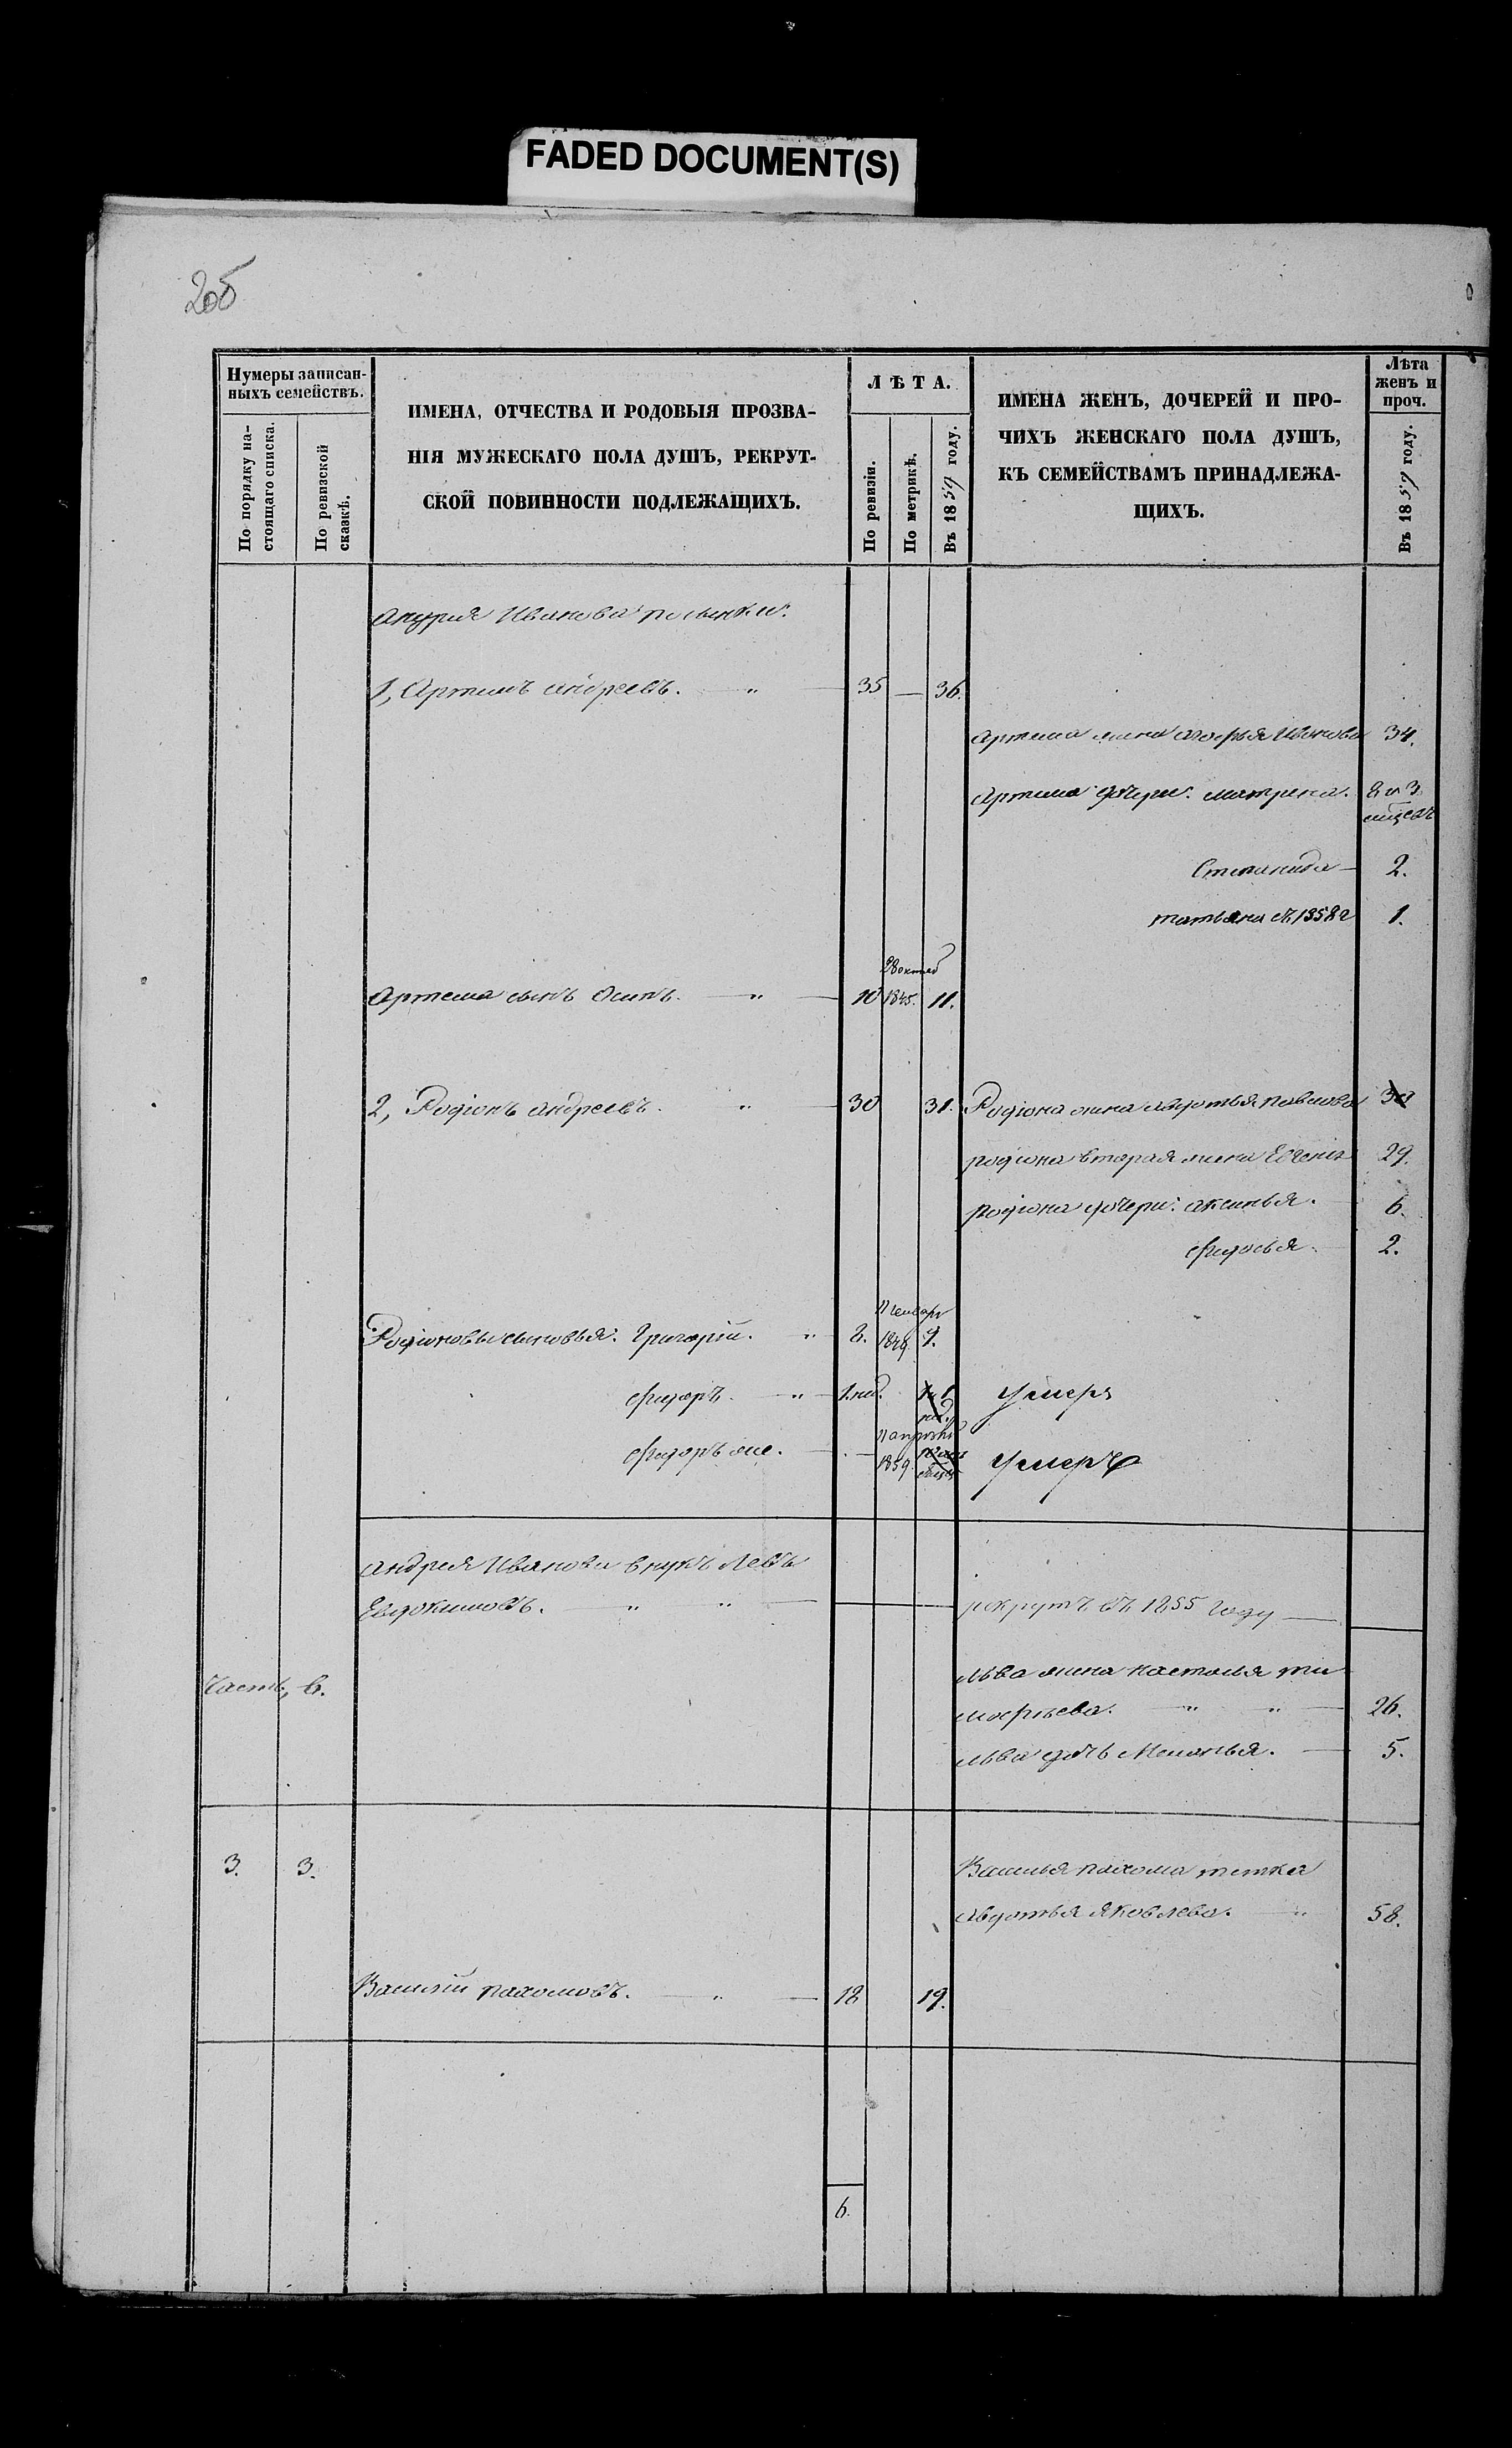 FADED DOCUMENT(S)
205
Нумеры записан-
ныхъ семействъ.
По порядку на-
стоящаго списка.
По ревизской
сказкѣ.
ИМЕНА, ОТЧЕСТВА И РОДОВЫЯ ПРОЗВА-
НІЯ МУЖЕСКАГО ПОЛА ДУШЪ, РЕКРУТ-
СКОЙ ПОВИННОСТИ ПОДЛЕЖАЩИХЪ.
ЛѢТА.
По ревизіи.
По метрикѣ.
Въ 1859 году.
ИМЕНА ЖЕНЪ, ДОЧЕРЕЙ И ПРО-
ЧИХЪ ЖЕНСКАГО ПОЛА ДУШЪ,
КЪ СЕМЕЙСТВАМЪ ПРИНАДЛЕЖА-
ЩИХЪ.
Лѣта
женъ и
проч.
Въ 1859 году.
Андрея Иванова
1, Артемъ андреевъ. " 35 — 36.
Артема жена Иванова 34.
Артема дочери: матрена. 8 и 3
Степанида — 2.
татьяна съ 1858 г 1.
28 октяб
Артема сынъ Осипъ. — " — 10 1845. 11.
2, Родіонъ андреевъ. " — 30 31. Родіона жена авдотья павлова 30
родіона вторая жена Евгенія 29.
родіона дочери: аксинья. 6.
федосья. 2.
11 генваря
Родіоновы сыновья: Григорій. " 8. 1849. 9.
федоръ. — " — 1 нед. умеръ
федоръ же. — 1859. умеръ
андрея Иванова внукъ Левъ
Евдокимовъ. — " " — рекрутъ въ 1855 году —
Часть, 6.
Льва жена настасья ти
мофеева. — " " — 26.
Льва дочь Меланья. — 5.
3. 3. Василья пахома тетка
авдотья яковлева. — " 58.
Василій пахомовъ. — " — 18 19.
6.